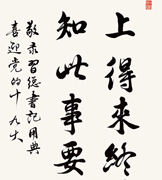 上得来终
知此事要
敬录习总书记用典
喜迎党的十九大